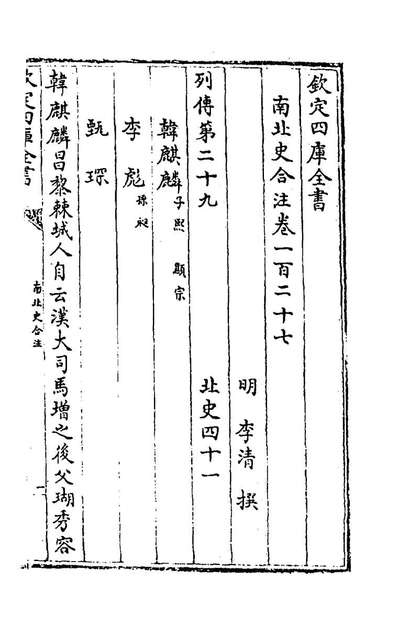 欽定四庫全書
南北史合注卷一百二十七
明 李清 撰
列傳第二十九 北史四十一
韓麒麟 子熙 顯宗
李彪 孫昶
甄琛
韓麒麟昌黎棘城人自云漢大司馬增之後父瑚秀容
欽定四庫全書
南北史合注
一